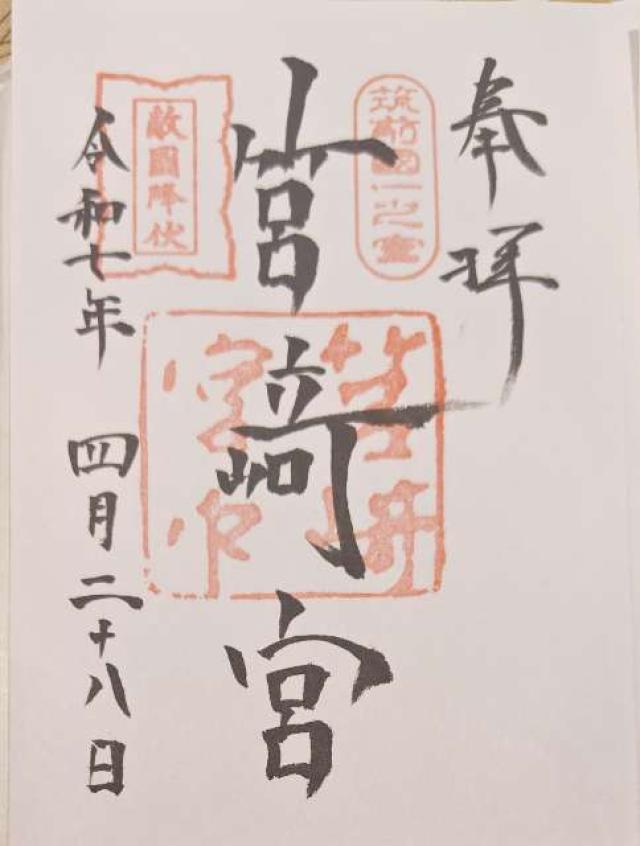 奉拝
筑前國一之宮
筥﨑宮
敵國降伏
令和七年 四月二十八日